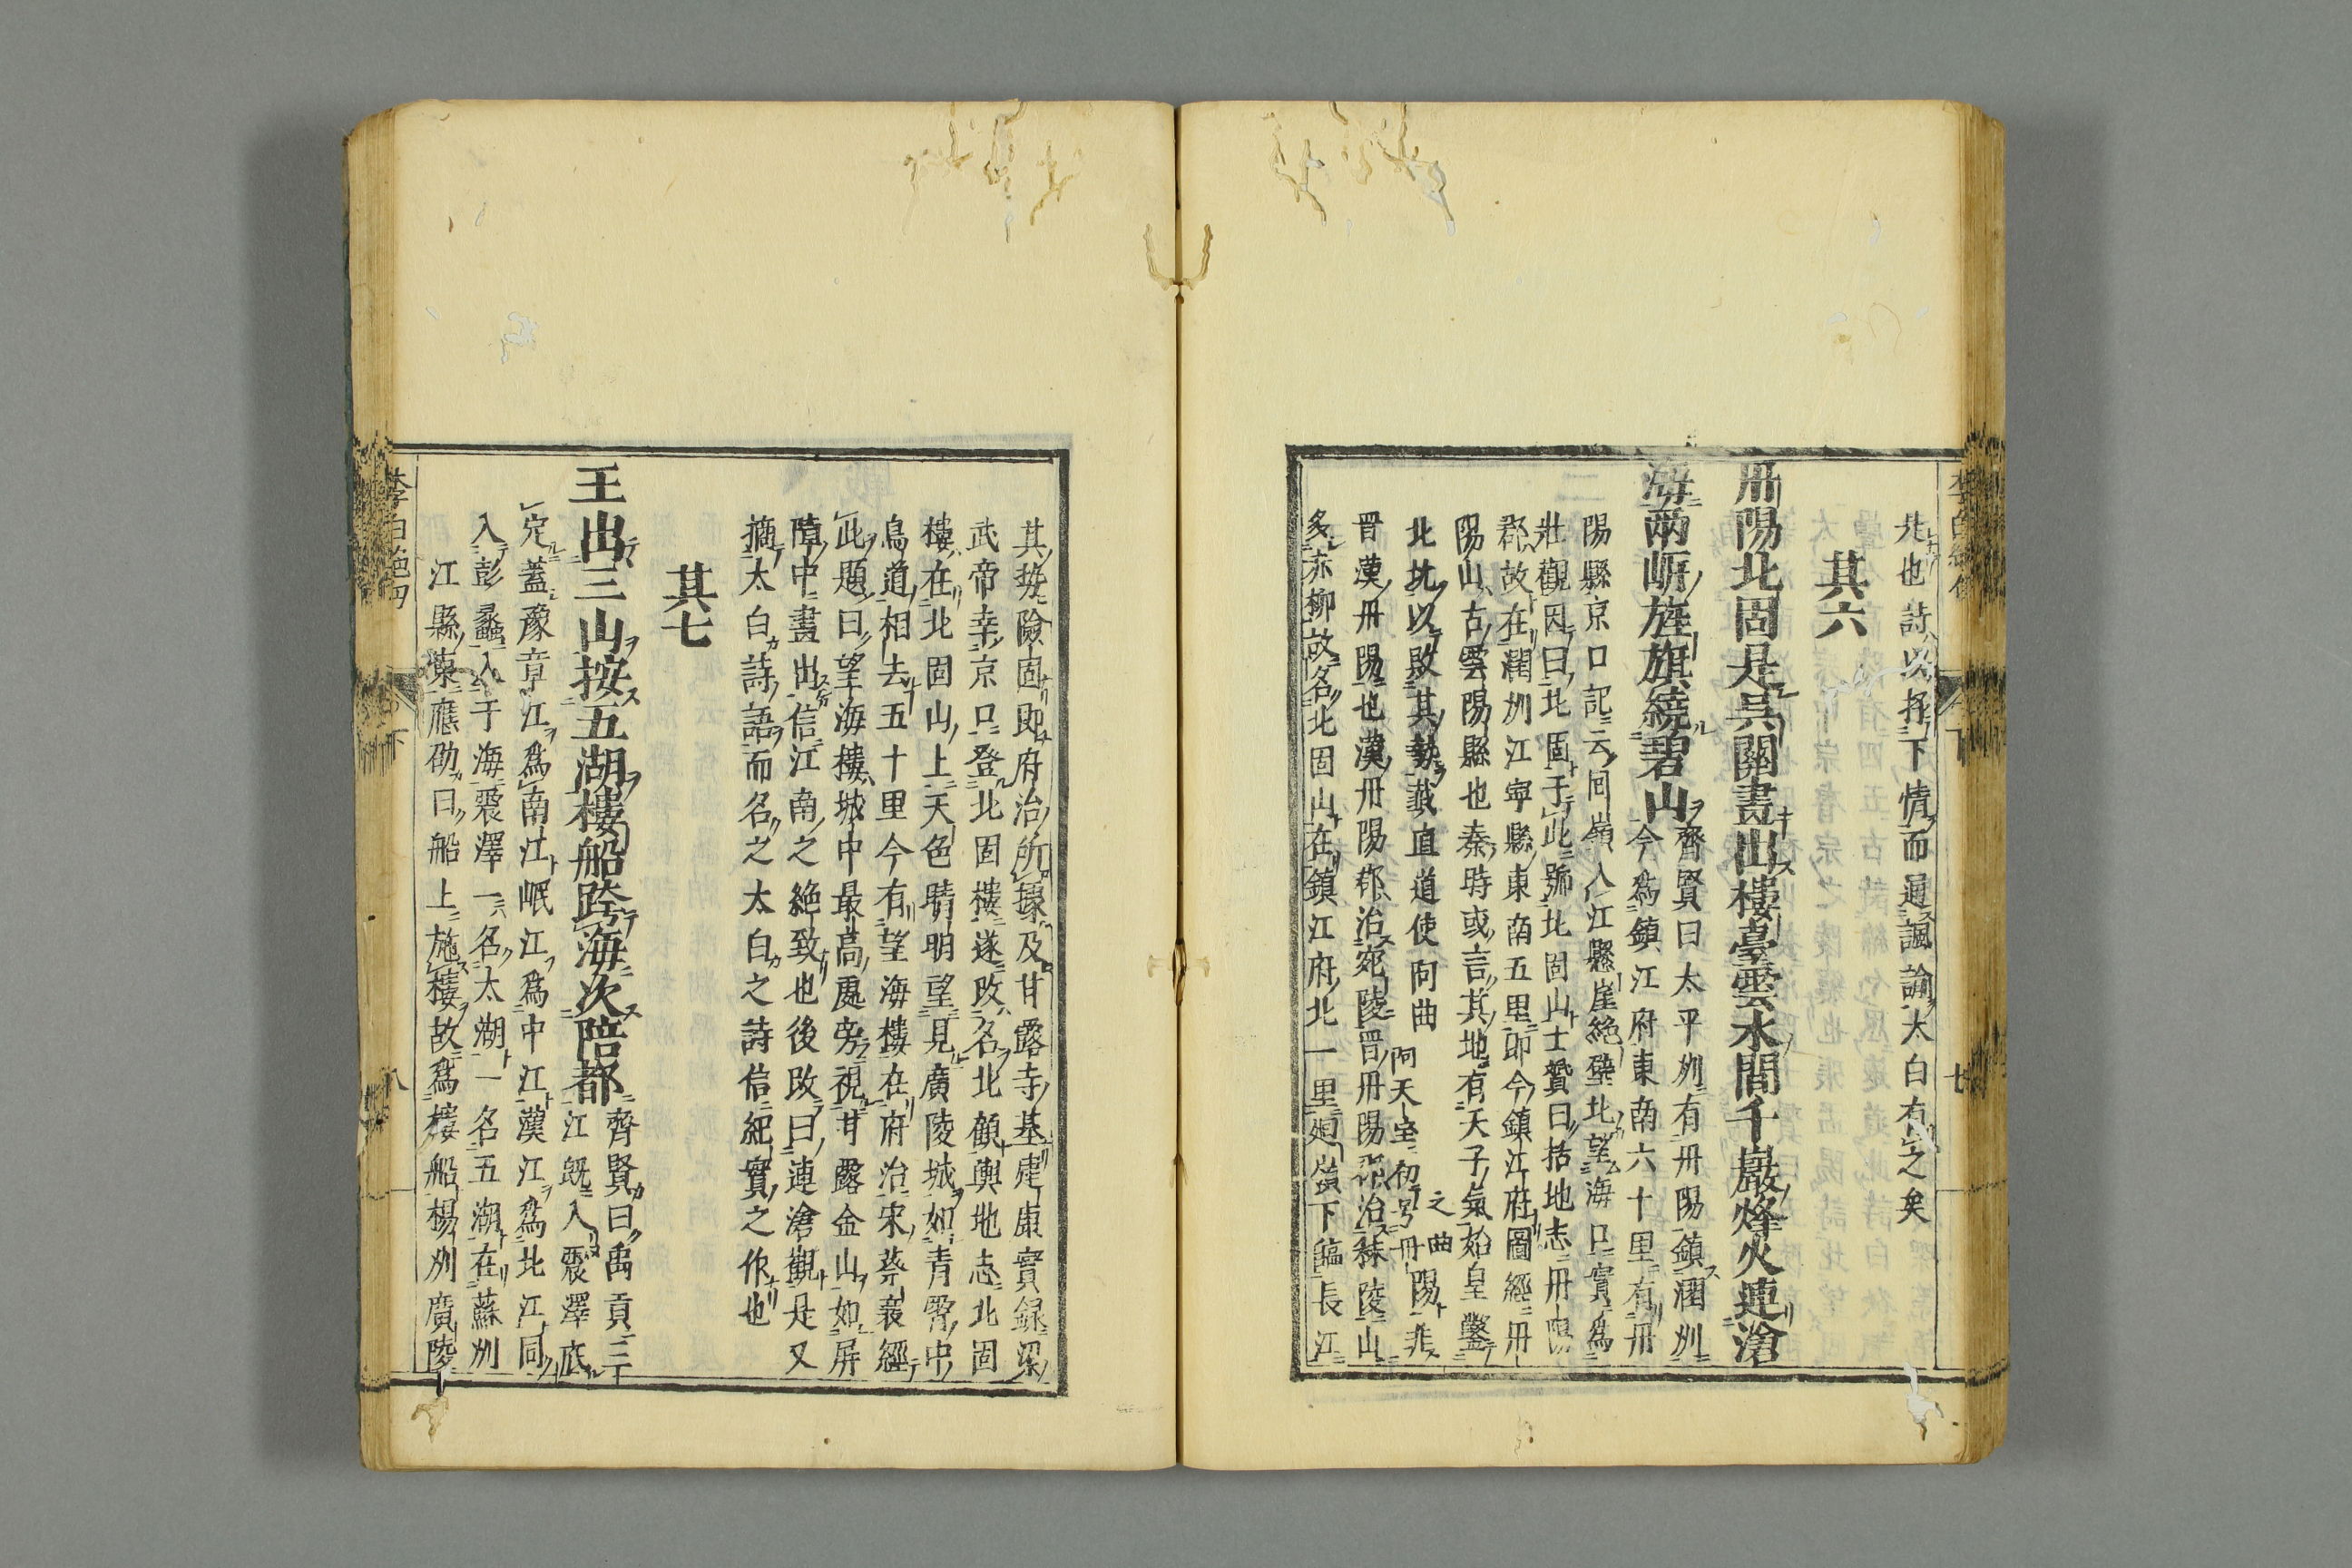 北也詩以抒下情而通諷諭太白有之矣
其六
丹陽北固是吳關畫出樓臺雲水間千巖烽火連滄
海兩岍旌旗繞碧山
齊賢曰太平州有丹陽鎮潤州
今爲鎮江府東南六十里有丹
陽縣京口記云回嶺入江縣崖絶壁北望海口實爲
壯觀因曰北固于此號北固山士贇曰括地志丹陽
郡故在潤州江寧縣東南五里即今鎮江府圖經丹
陽山古雲陽縣也秦時或言其地有天子氣始皇鑿
北坑以敗其勢截直道使阿曲
阿天宝初号丹陽非
之曲
晋漢丹陽也漢丹陽郡治宛陵晋丹陽郡治秣陵山
多赤柳故名北固山在鎮江府北一里廻嶺下臨長江
其勢險固即府治所據及甘露寺基建康實録梁
武帝幸京口登北固樓遂改名北顧輿地志北固
樓在北固山上天色晴明望見廣陵城如青霄中
鳥道相去五十里今有望海樓在府治宋蔡襄經
此題曰望海樓城中最高處旁視甘露金山如屏
障中畫出信江南之絶致也後改曰連滄觀是又
摘太白詩語而名之太白之詩信紀實之作也
其七
王出三山按五湖樓船跨海次陪都
齊賢曰禹貢三
江既入震澤底
定蓋豫章江爲南江岷江爲中江漢江爲北江同
入彭蠡入于海震澤一名太湖一名五湖在蘇州
江縣東應劭曰船上施樓故爲樓船楊州廣陵
李白絶句
下
七
李白絶句
下
八